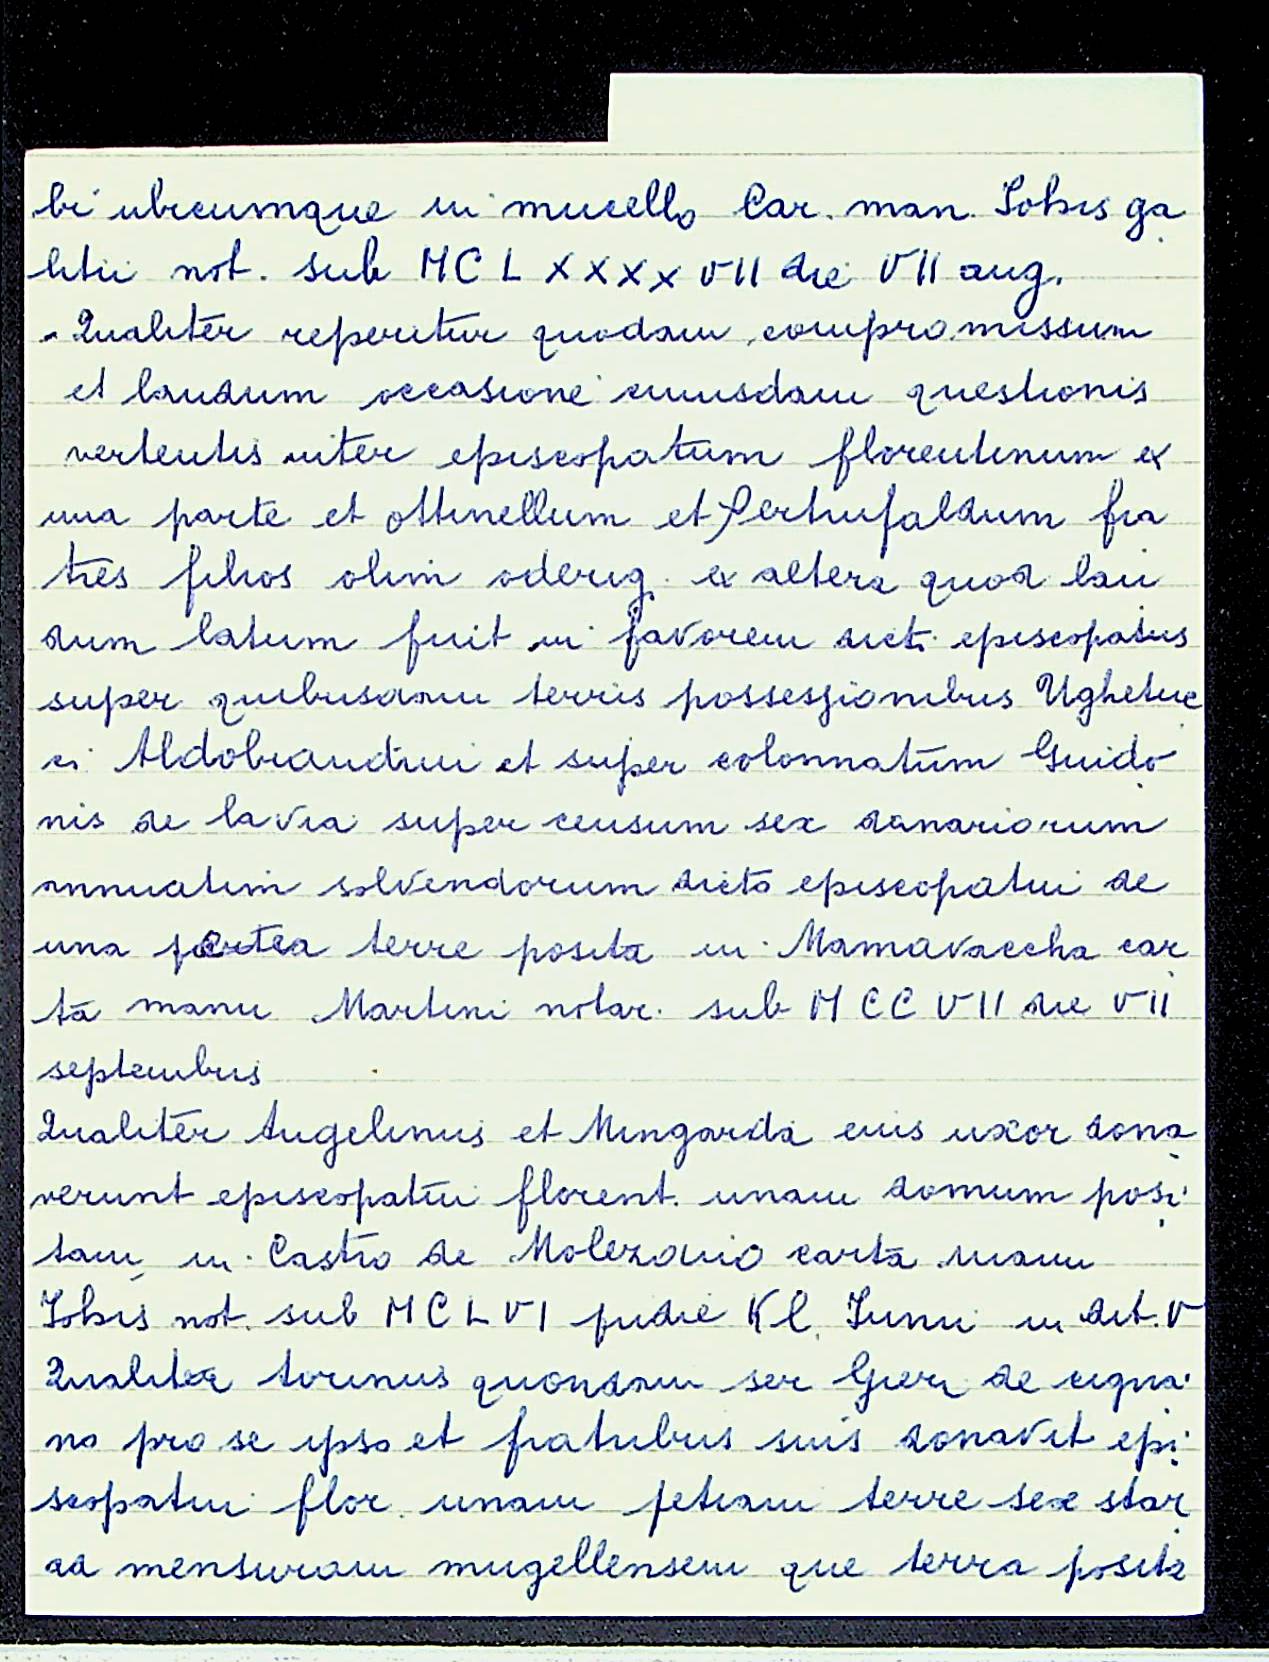 bi ubicumque in mucello Car. man. Iohis ga
litii not. sub MCLXXXXVII die VII aug.
- Qualiter reperitur quodam compromissum
et laudum occasione cuiusdam questionis
vertentis inter episcopatum florentinum ex
una parte et Ottinellum et Pertrifaldum fra
tres filios olim oderig. ex altera quod lau
dum latum fuit in favorem dicti episcopatus
super quibusdam terris possessionibus Ughettuc
ci Aldobrandini et super colonnatum Guido
nis de la via super censum sex danariorum
annuatim solvendorum dicto episcopatui de
una petia terre posita in Mamavaccha car
ta manu Martini notar. sub MCCVII die VII
septembris
Qualiter Angelinus et Mingarda eius uxor dona
verunt episcopatui florent. unam domum posi
tam in Castro de Molezano carta manu
Iohis not. sub MCLVI pridie Kl. Iunii in dit. V
Qualiter torinus quondam ser Gieri de cigna
no pro se ipso et fratribus suis donavit epi
scopatui flor. unam petiam terre sex star
ad mensuram mugellensem que terra posita